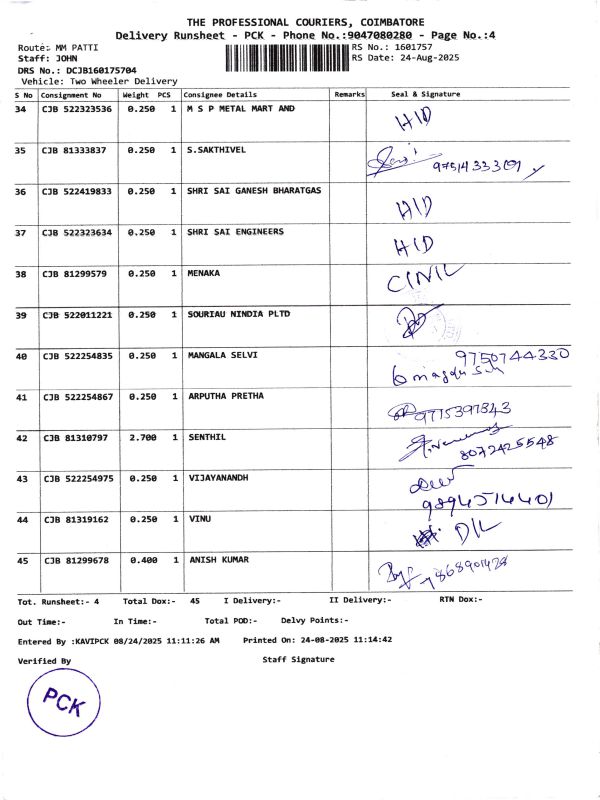 THE PROFESSIONAL COURIERS, COIMBATORE
Delivery Runsheet - PCK - Phone No.:9047080280 - Page No.:4
Route: MM PATTI RS No.: 1601757
Staff: JOHN RS Date: 24-Aug-2025
DRS No.: DCJB160175704
Vehicle: Two Wheeler Delivery
S No Consignment No Weight PCS Consignee Details Remarks Seal & Signature
34 CJB 522323536 0.250 1 M S P METAL MART AND H/D
35 CJB 81333837 0.250 1 S.SAKTHIVEL
36 CJB 522419833 0.250 1 SHRI SAI GANESH BHARATGAS H/D
37 CJB 522323634 0.250 1 SHRI SAI ENGINEERS H/D
38 CJB 81299579 0.250 1 MENAKA
39 CJB 522011221 0.250 1 SOURIAU NINDIA PLTD
40 CJB 522254835 0.250 1 MANGALA SELVI 9750744330
41 CJB 522254867 0.250 1 ARPUTHA PRETHA 9715397343
42 CJB 81310797 2.700 1 SENTHIL 8072425548
43 CJB 522254975 0.250 1 VIJAYANANDH 9894514401
44 CJB 81319162 0.250 1 VINU D/L
45 CJB 81299678 0.400 1 ANISH KUMAR
Tot. Runsheet:- 4 Total Dox:- 45 I Delivery:- II Delivery:- RTN Dox:-
Out Time:- In Time:- Total POD:- Delvy Points:-
Entered By :KAVIPCK 08/24/2025 11:11:26 AM Printed On: 24-08-2025 11:14:42
Verified By Staff Signature
PCK